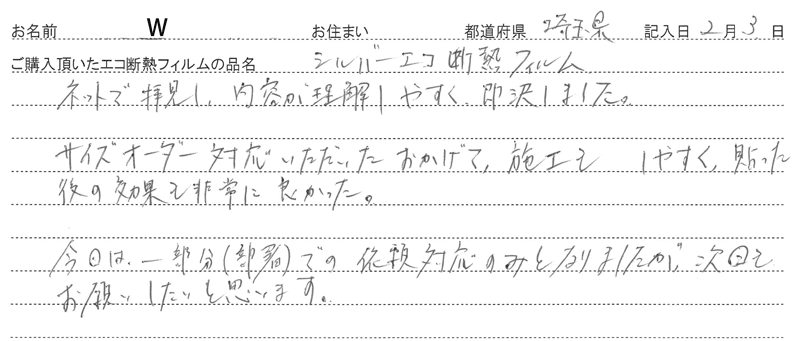 お名前 W お住まい 都道府県 埼玉県 記入日 2月3日
ご購入頂いたエコ断熱フィルムの品名 シルバーエコ断熱フィルム
ネットで拝見し、内容が理解しやすく、即決しました。
サイズオーダー対応いただいたおかげで、施工も しやすく、貼った
後の効果も非常に良かった。
今回は、一部分(部署)での依頼対応のみとなりましたが、次回も
お願いしたいと思います。